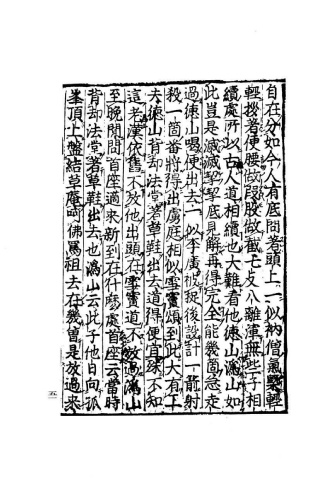 自在分如今人有底問着頭上一似衲僧氣槩輕
輕拶着便腰做段股做截七支八離渾無些子相
續處所以古人道相續也大難看他德山溈山如
此豈是滅滅挈挈底見解再得完全能幾箇急走
過德山喝便出去一似李廣被捉後設計一箭射
殺一箇番將得出虜庭相似雪竇頌到此大有工
夫德山背却法堂著草鞋出去道得便宜殊不知
這老漢依舊不放他出頭在雪竇道不放過溈山
至晚間問首座適來新到在什麽處首座云當時
背却法堂著草鞋出去也溈山云此子他日向孤
峯頂上盤結草庵呵佛罵祖去在幾曽是放過來
五